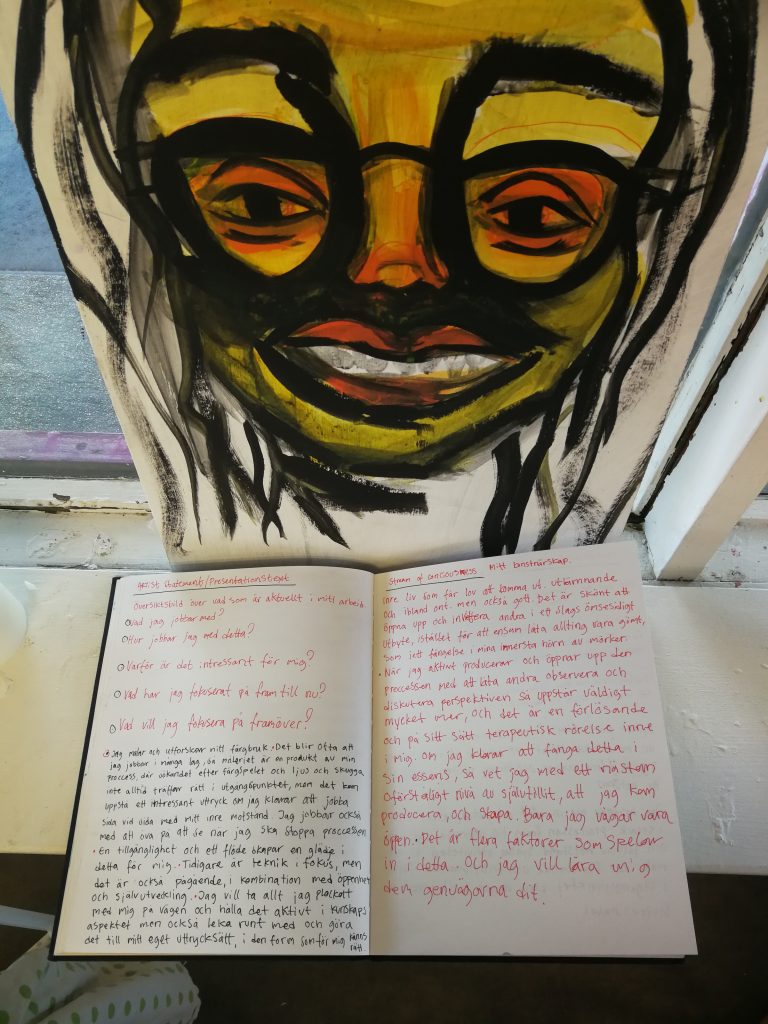 Artist Statement/Presentationstext
Översiktsbild över vad som är aktuellt i mitt arbete
Vad jag jobbar med?
Hur jobbar jag med detta?
Varför är det intressant för mig?
Vad har jag fokuserat på fram till nu?
Vad vill jag fokusera på framöver?
Jag målar och utforskar mitt färgbruk. Det blir ofta att
jag jobbar i många lag, så måleriet är en produkt av min
process, där sökandet efter färgspelet och ljus och skugga
inte alltid träffar rätt i utgångspunktet, men det kan
uppstå ett intressant uttryck om jag klarar att jobba
sida vid sida med mitt inre motstånd. Jag jobbar också
med att öva på att se när jag ska stoppa proccessen
En tillgänglighet och ett flöde skapar en glädje i
detta för mig. Tidigare är teknik i fokus, men
det är också pågående, i kombination med öppenhet
och självutveckling. Jag vill ta allt jag plockat
med mig på vägen och hålla det aktivt i kunskaps
aspektet men också leka runt med och göra
det till mitt eget uttrycksätt, i den form som för mig känns
rätt.
Stream of conciousness Mitt konstnärskap.
inre liv som får lov att komma ut. utlämnande
och ibland ont. men också gott. Det är skönt att
öppna upp och invitera andra i ett slags ömsesidigt
utbyte, istället för att ensam låta allting vara gömt,
som i ett fängelse i mina innersta hörn av mörker.
När jag aktivt producerar och öppnar upp den
proccessen med att låta andra observera och
diskutera perspektiven så uppstår väldigt
mycket mer, och det är en förlösande
och på sitt sätt terapeutisk rörelse inne
i mig. Om jag klarar att fånga detta i
sin essens, så vet jag med ett nästan
oförståligt nivå av självtillit, att jag kan
producera, och skapa. Bara jag vågar vara
öppen. Det är flera faktorer som spelar
in i detta. Och jag vill lära mig
dem genvägarna dit.